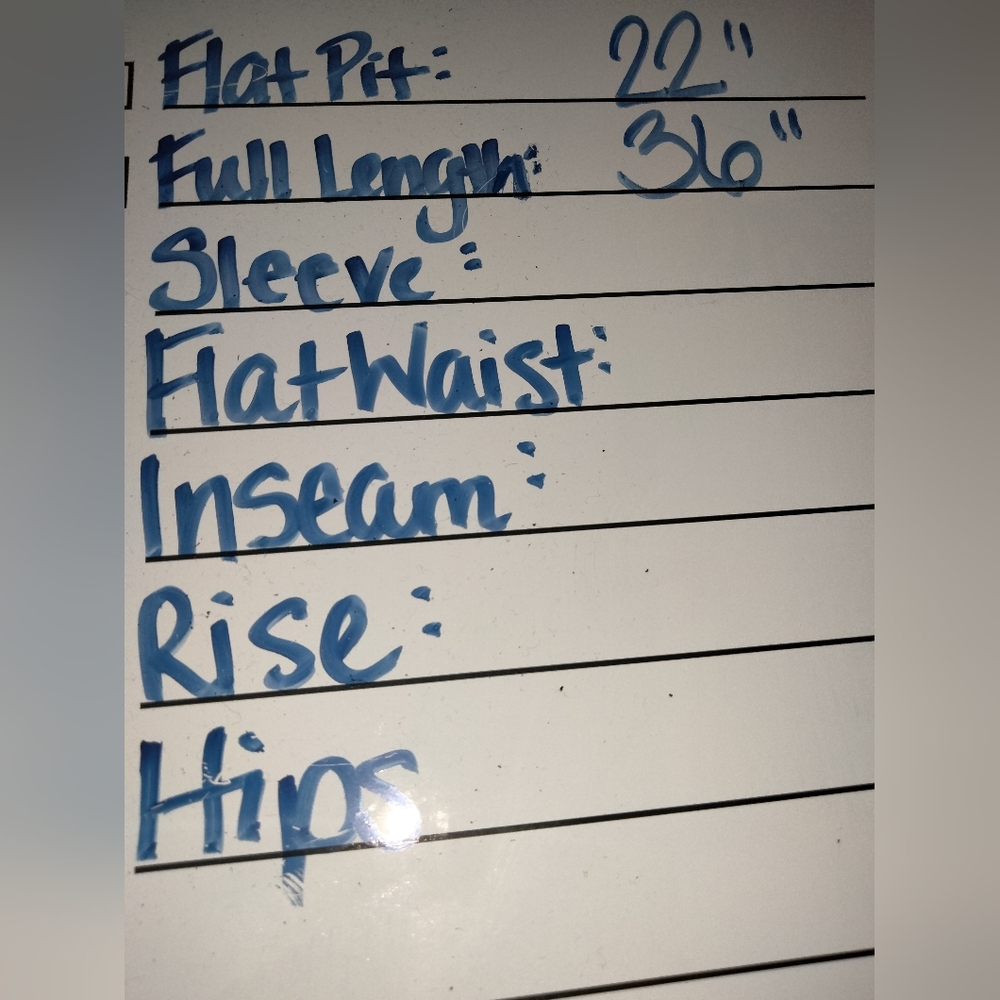 Flat Pit: 22"
Full Length: 36"
Sleeve:
Flat Waist:
Inseam:
Rise:
Hips